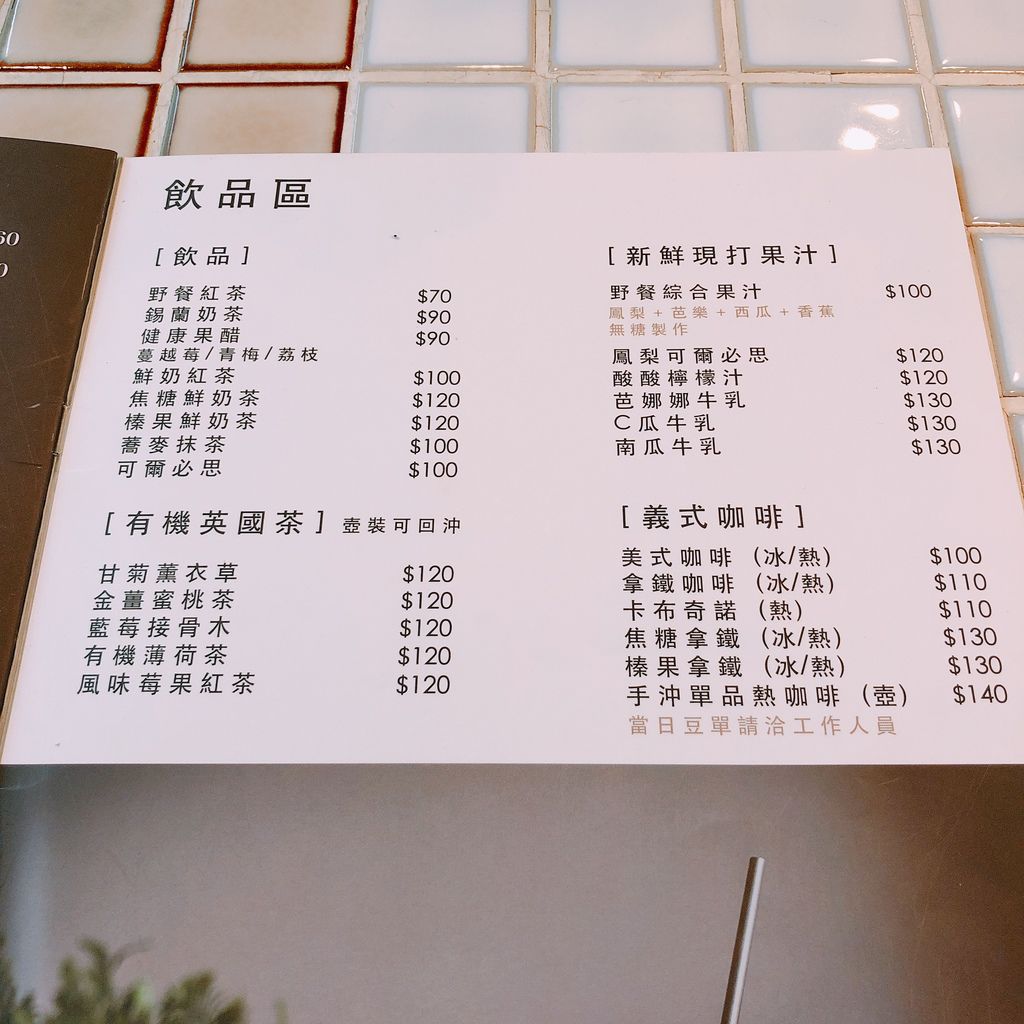 60
0
飲品區
[飲品]
野餐紅茶 $70
錫蘭奶茶 $90
健康果醋 $90
蔓越莓/青梅/荔枝
鮮奶紅茶 $100
焦糖鮮奶茶 $120
榛果鮮奶茶 $120
蕎麥抹茶 $100
可爾必思 $100
[有機英國茶] 壺裝可回沖
甘菊薰衣草 $120
金薑蜜桃茶 $120
藍莓接骨木 $120
有機薄荷茶 $120
風味莓果紅茶 $120
[新鮮現打果汁]
野餐綜合果汁 $100
鳳梨+芭樂+西瓜+香蕉
無糖製作
鳳梨可爾必思 $120
酸酸檸檬汁 $120
芭娜娜牛乳 $130
C瓜牛乳 $130
南瓜牛乳 $130
[義式咖啡]
美式咖啡 (冰/熱) $100
拿鐵咖啡 (冰/熱) $110
卡布奇諾 (熱) $110
焦糖拿鐵 (冰/熱) $130
榛果拿鐵 (冰/熱) $130
手沖單品熱咖啡 (壺) $140
當日豆單請洽工作人員